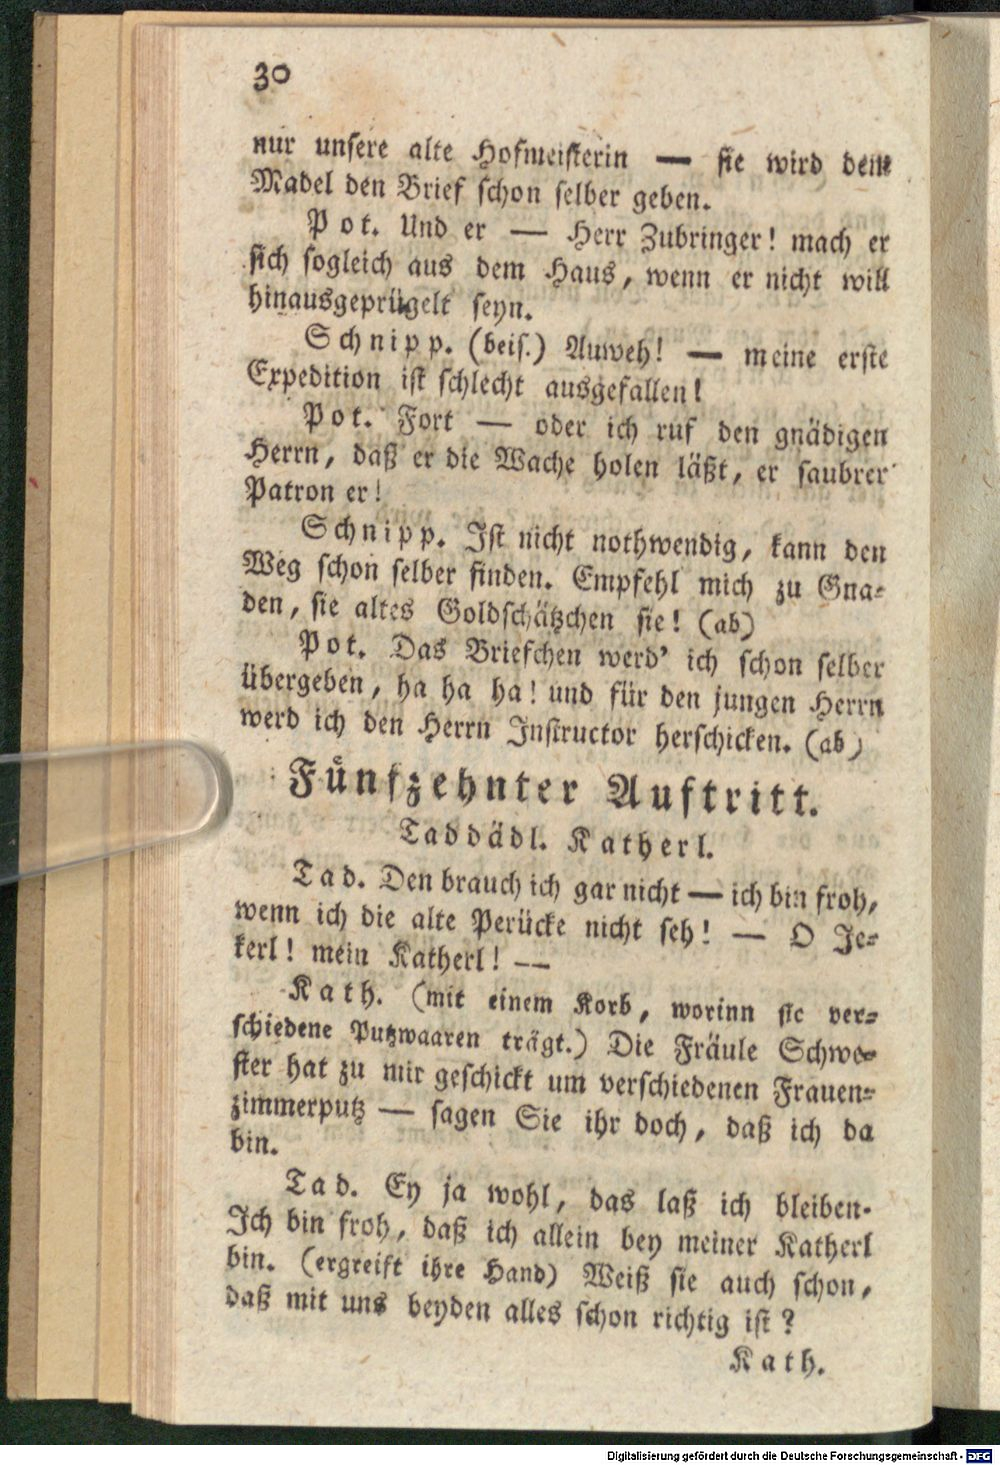 30
nur unsere alte Hofmeisterin — sie wird dem
Madel den Brief schon selber geben.
Pot. Und er — Herr Zubringer! mach er
sich sogleich aus dem Haus, wenn er nicht will
hinausgeprügelt seyn.
Schnipp. (beis.) Auweh! — meine erste
Expedition ist schlecht ausgefallen!
Pot. Fort — oder ich ruf den gnädigen
Herrn, daß er die Wache holen läßt, er saubrer
Patron er!
Schnipp. Ist nicht nothwendig, kann den
Weg schon selber finden. Empfehl mich zu Gna-
den, sie altes Goldschätzchen sie! (ab)
Pot. Das Briefchen werd' ich schon selber
übergeben, ha ha ha! und für den jungen Herrn
werd ich den Herrn Instructor herschicken. (ab)
Fünfzehnter Auftritt.
Taddädl. Katherl.
Tad. Den brauch ich gar nicht — ich bin froh,
wenn ich die alte Perücke nicht seh! — O Je-
kerl! mein Katherl! —
Kath. (mit einem Korb, worinn sie ver-
schiedene Putzwaaren trägt.) Die Fräule Schwe-
ster hat zu mir geschickt um verschiedenen Frauen-
zimmerputz — sagen Sie ihr doch, daß ich da
bin.
Tad. Ey ja wohl, das laß ich bleiben.
Ich bin froh, daß ich allein bey meiner Katherl
bin. (ergreift ihre Hand) Weiß sie auch schon,
daß mit uns beyden alles schon richtig ist?
Kath.
Digitalisierung gefördert durch die Deutsche Forschungsgemeinschaft - DFG